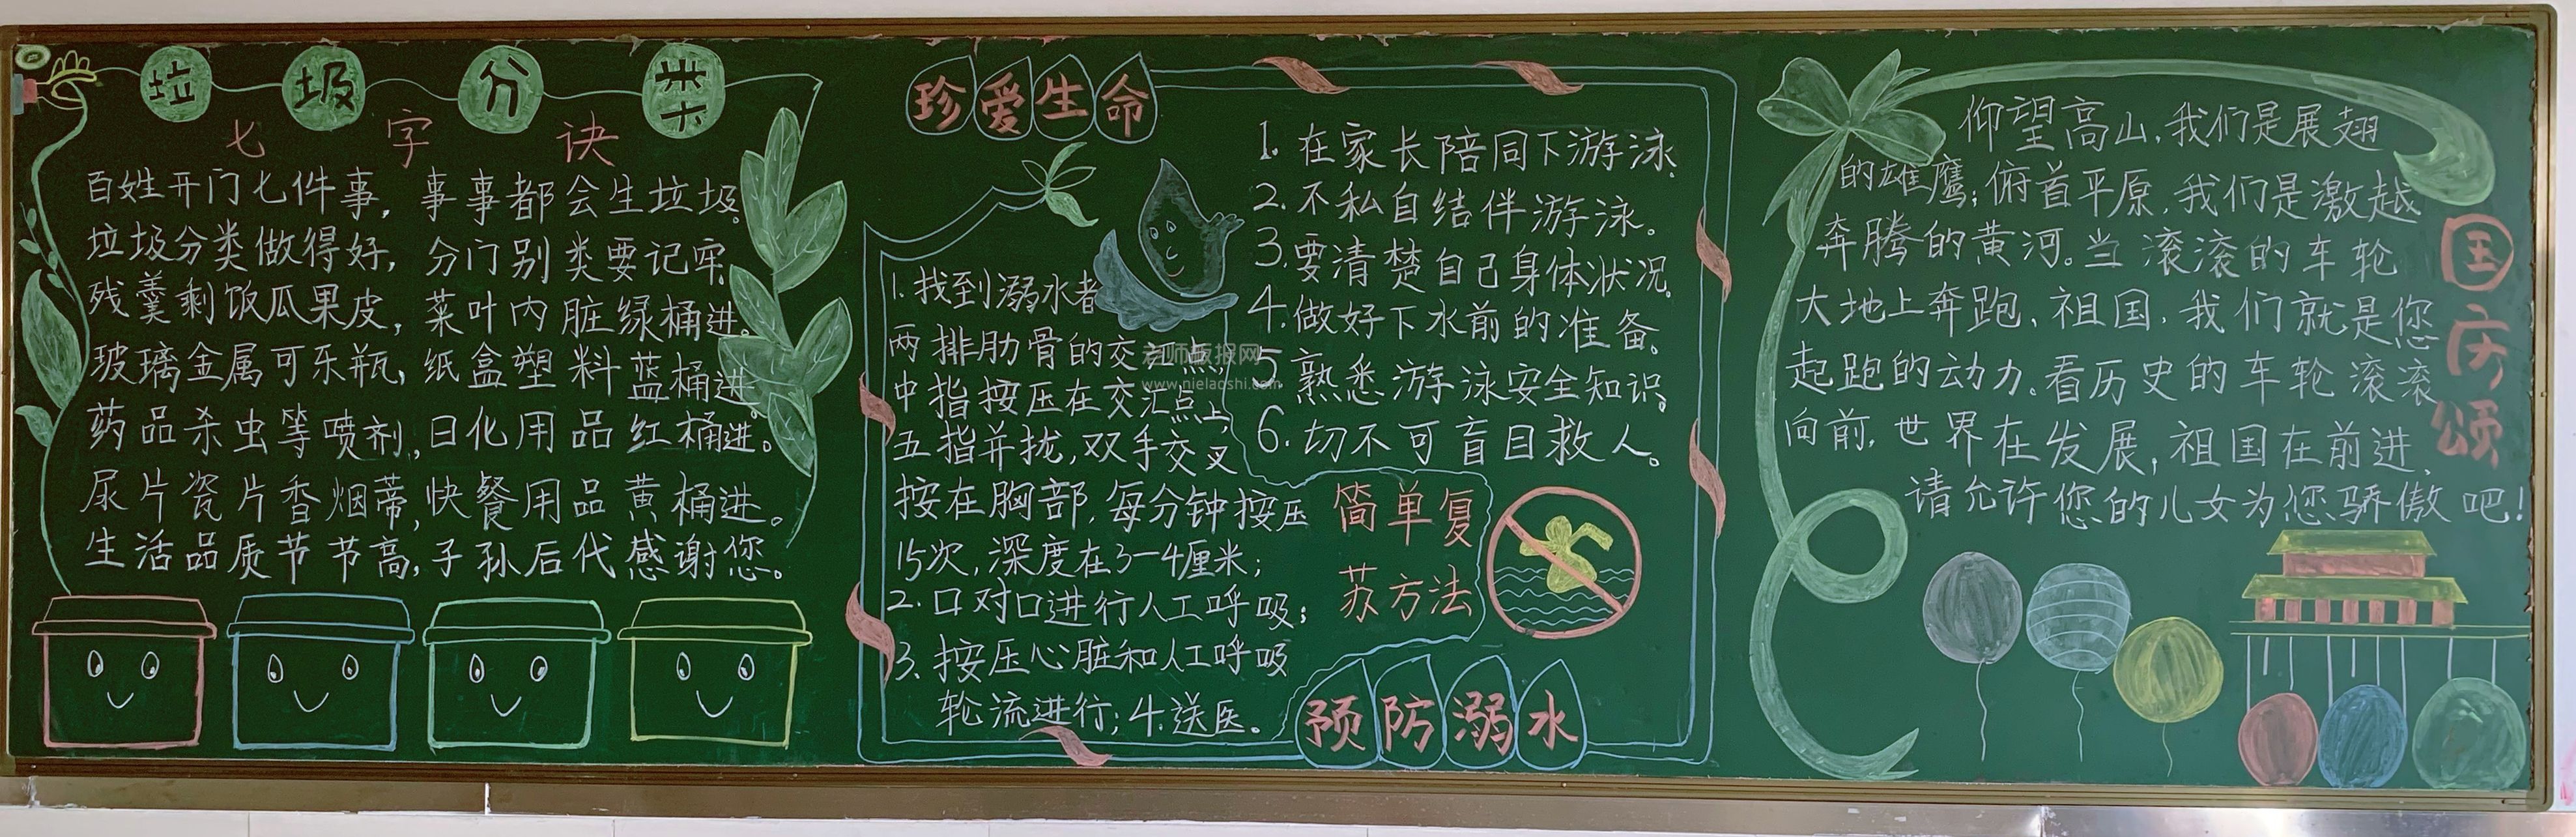 垃圾分类
七字诀
百姓开门七件事，事事都会生垃圾。
垃圾分类做得好，分门别类要记牢。
残羹剩饭瓜果皮，菜叶内脏绿桶进。
玻璃金属可乐瓶，纸盒塑料蓝桶进。
药品杀虫等喷剂，日化用品红桶进。
尿片瓷片香烟蒂，快餐用品黄桶进。
生活品质节节高，子孙后代感谢您。
珍爱生命
1. 在家长陪同下游泳.
2. 不私自结伴游泳。
3. 要清楚自己身体状况.
4. 做好下水前的准备。
5. 熟悉游泳安全知识。
6. 切不可盲目救人。
1. 找到溺水者
两排肋骨的交汇点，
中指按压在交汇点上，
五指并拢，双手交叉
按在胸部，每分钟按压
15次，深度在3—4厘米；
2. 口对口进行人工呼吸；
3. 按压心脏和人工呼吸
轮流进行；4. 送医。
简单复
苏方法
预防溺水
老师板报网
www.nielaoshi.com
仰望高山，我们是展翅
的雄鹰；俯首平原，我们是激越
奔腾的黄河。当滚滚的车轮
大地上奔跑、祖国，我们就是您
起跑的动力。看历史的车轮滚滚
向前，世界在发展，祖国在前进、
请允许您的儿女为您骄傲吧！
国庆颂